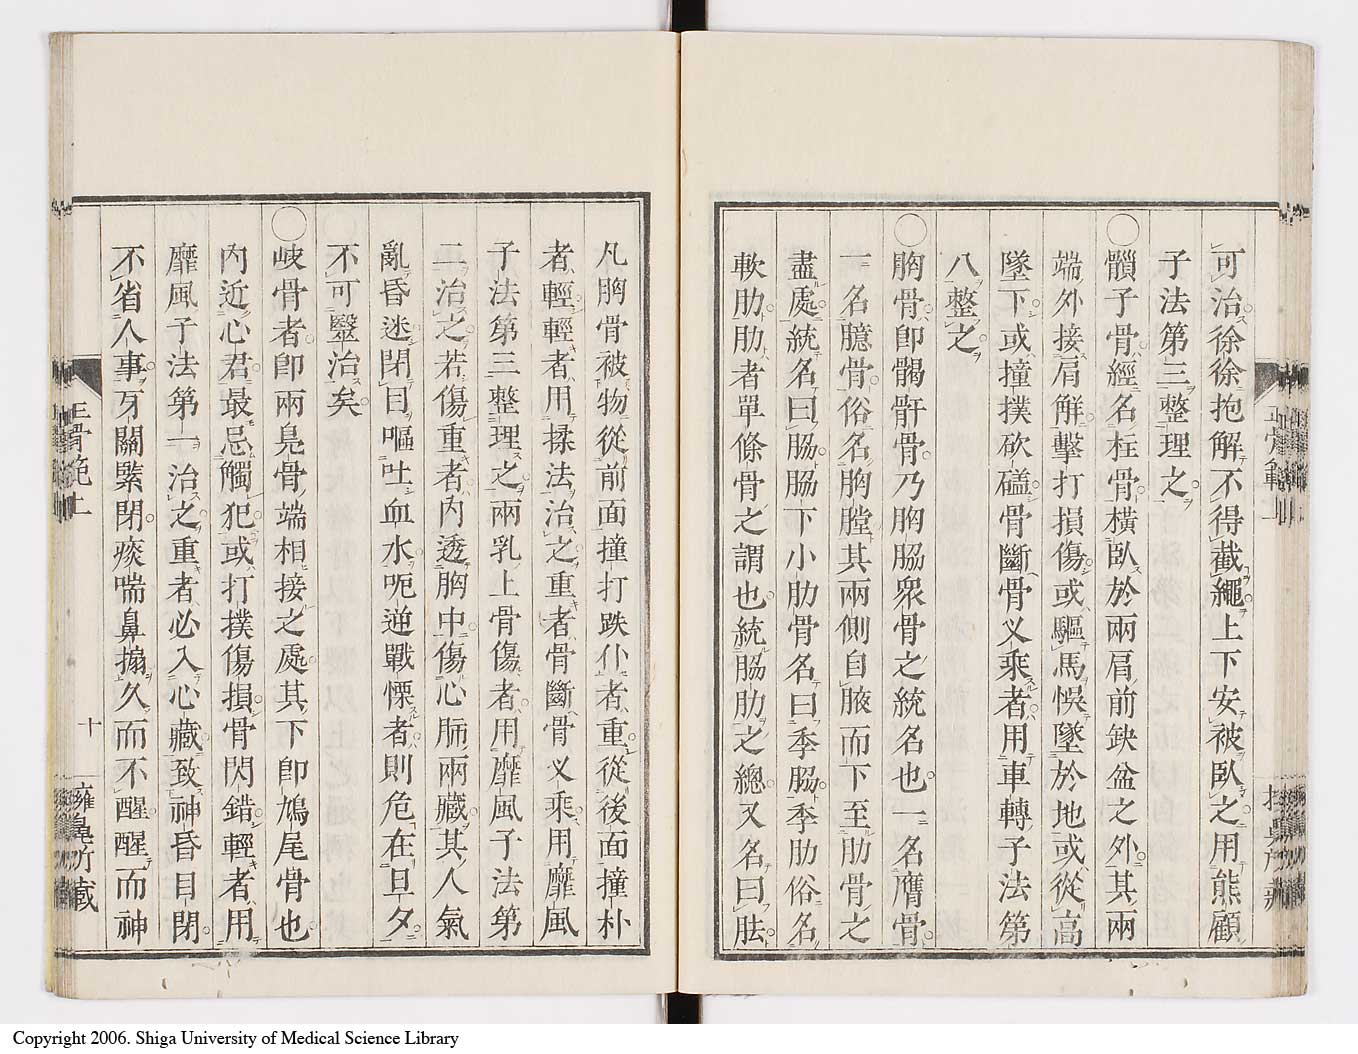 可治徐徐抱解不得截繩上下安被臥之用熊顧
子法第三整理之
○顖子骨經名柱骨橫臥於兩肩前缺盆之外其兩
端外接肩解擊打損傷或驅馬悞墜於地或從高
墜下或撞撲砍磕骨斷骨义乘者用車轉子法第
八整之
○胸骨卽䯏骬骨乃胸脇衆骨之統名也一名膺骨
一名臆骨俗名胸膛其兩側自腋而下至肋骨之
盡處統名曰脇脇下小肋骨名曰季脇季肋俗名
軟肋肋者單條骨之謂也統脇肋之總又名曰胠
凡胸骨被物從前面撞打跌仆者重從後面撞朴
者輕輕者用揉法治之重者骨斷骨义乘用靡風
子法第三整理之兩乳上骨傷者用靡風子法第
二治之若傷重者內透胸中傷心肺兩藏其人氣
亂昏迷閉目嘔吐血水呃逆戰慄者則危在旦夕
不可毉治矣
○岐骨者卽兩鳧骨端相接之處其下卽鳩尾骨也
內近心君最忌觸犯或打撲傷損骨閃錯輕者用
靡風子法第一治之重者必入心藏致神昏目閉
不省人事牙關緊閉痰喘鼻搧久而不醒醒而神
正骨範上
十
擁鼻所藏
Copyright 2006. Shiga University of Medical Science Library